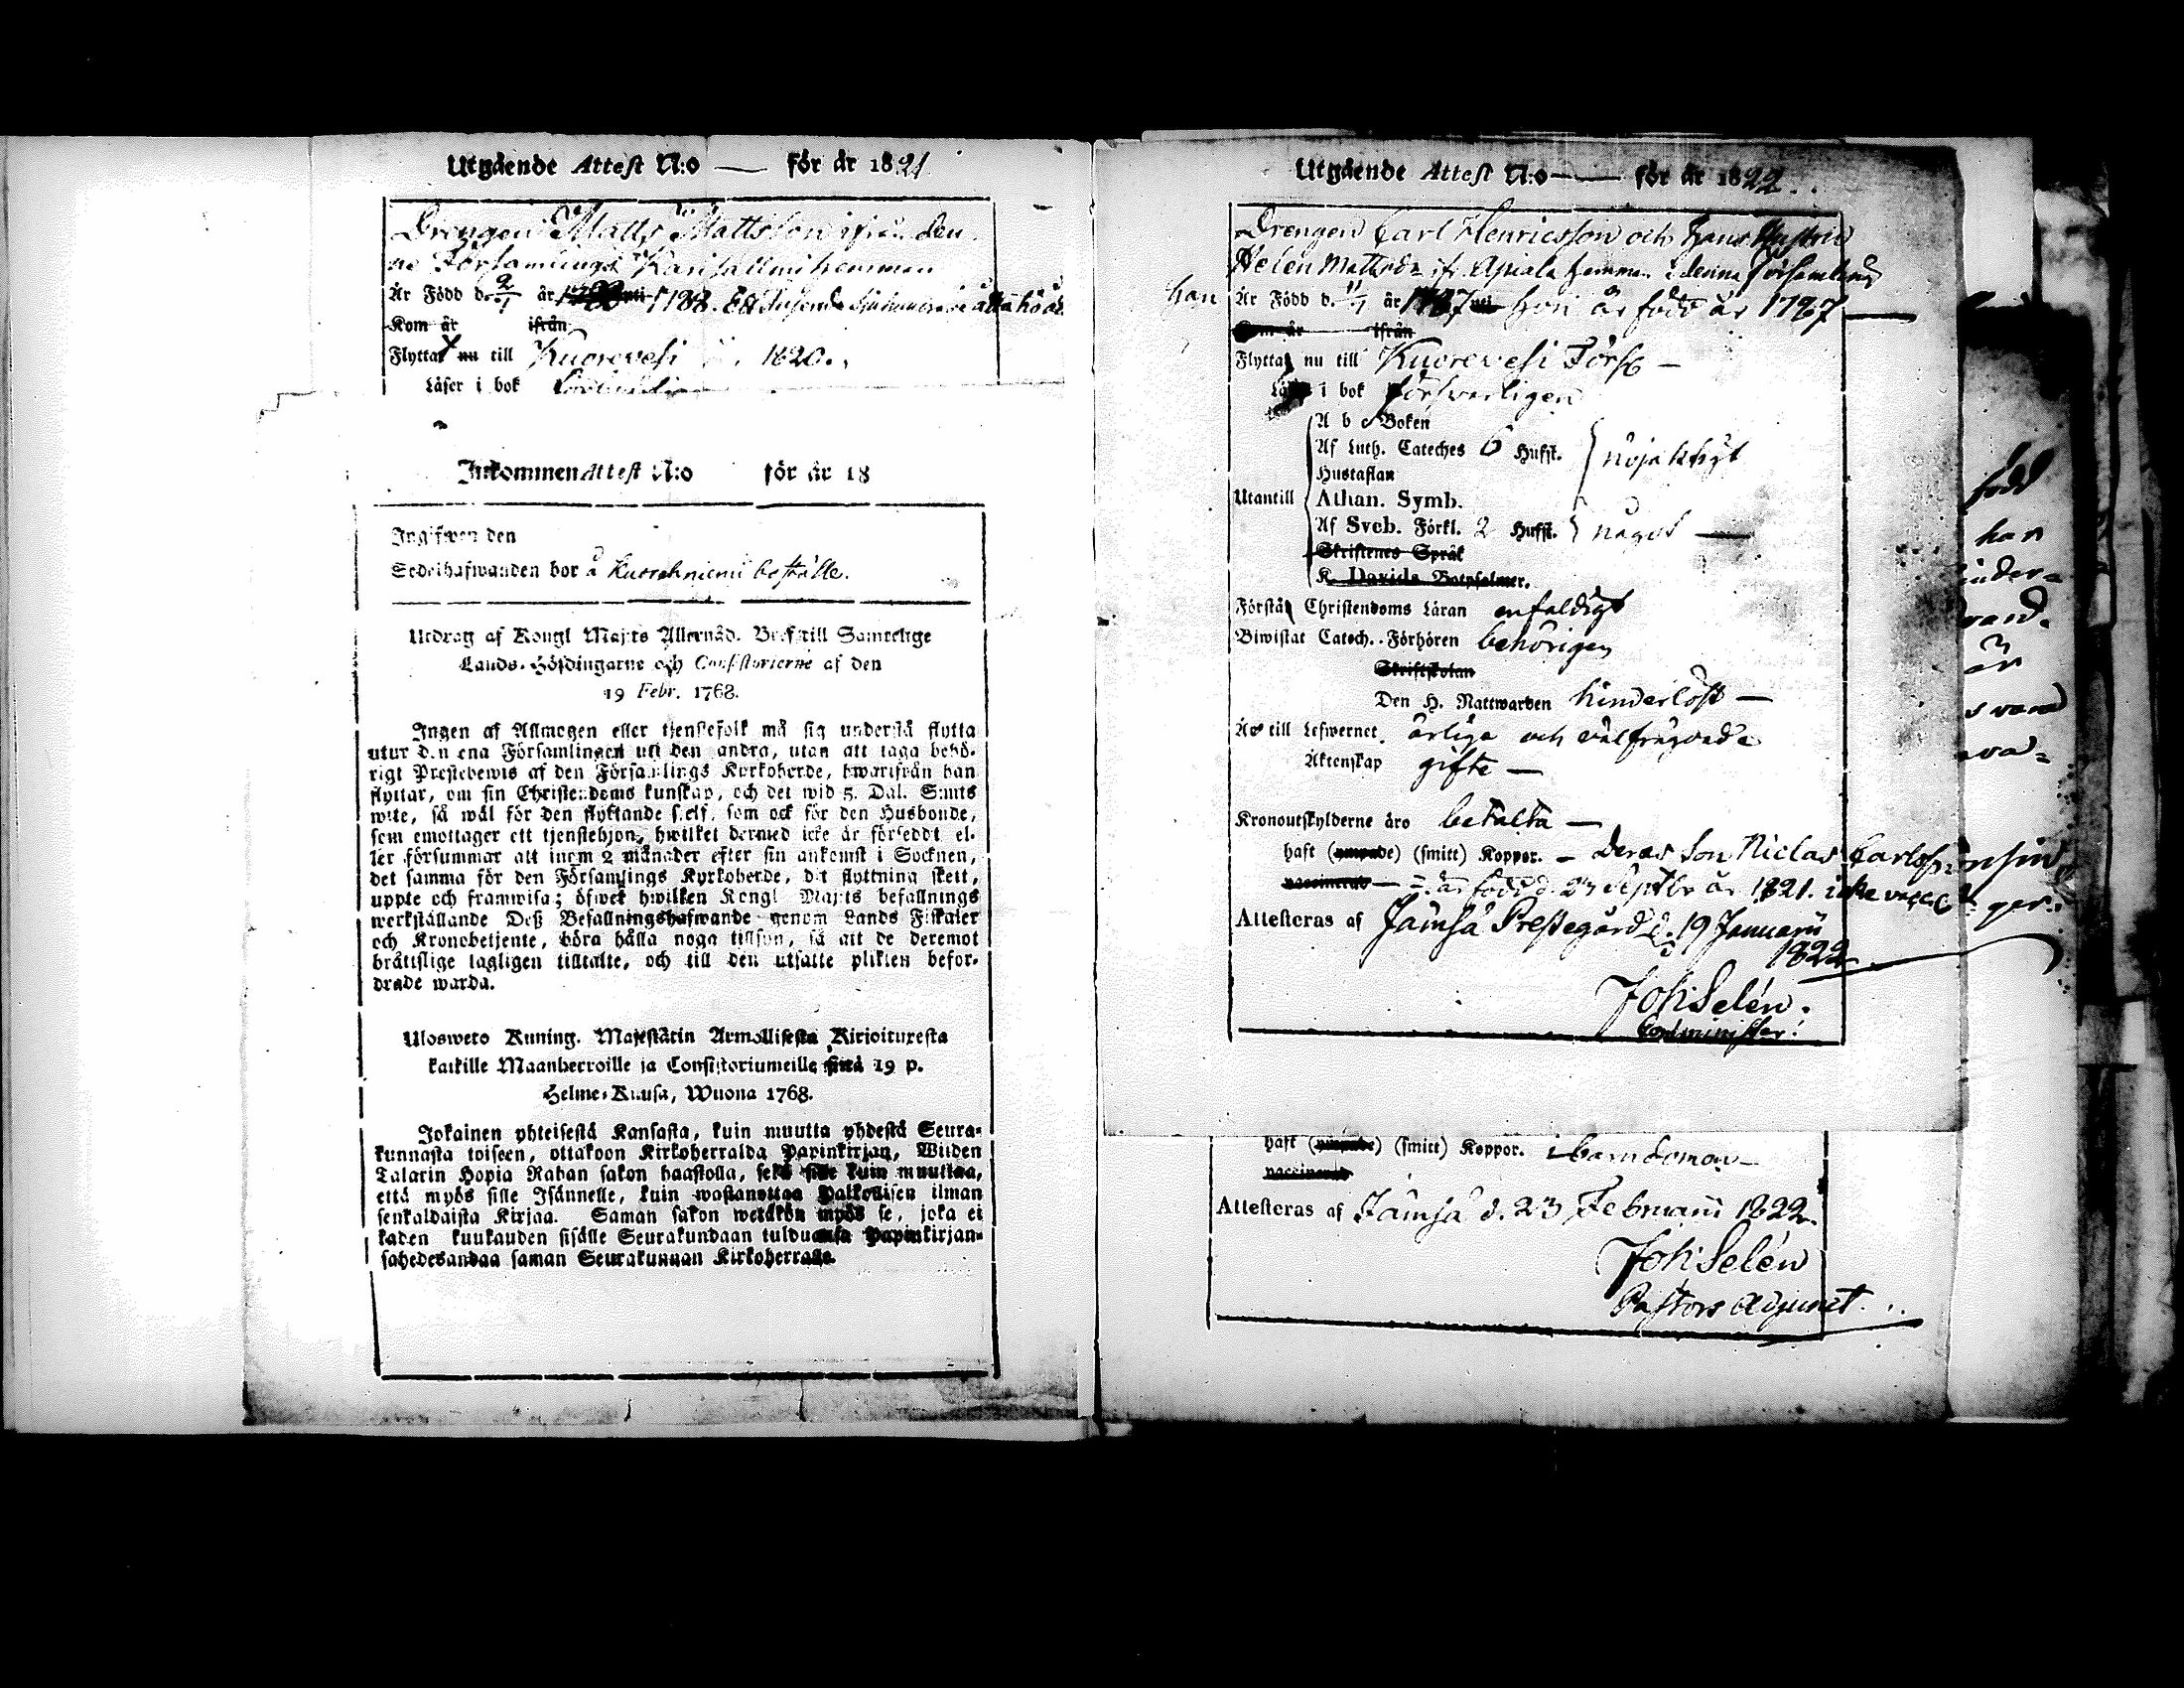 Utgående Attest N:o — för år 1821
Drengen Matts Mattsson ifrån den
ne Församlings hemman
Är Född d. 2/1 år 1788.
Kom år ifrån
Flyttat nu till Kuorevesi 1820.
Läser i bok
Inkommen Attest N:o för år 18
Ingifwen den
Sedelhafwanden bor å Kuorehniemi boställe.
Utdrag af Kongl Maj:ts Allernåd. Bref till Samtelige
Lands-Höfdingarne och Consistorierne af den
19 Febr. 1768.
Ingen af Allmogen eller tjenstefolk må sig understå flytta
utur den ena Församlingen uti den andra, utan att taga behö-
rigt Prestebewis af den Församlings Kyrkoherde, hwarifrån han
flyttar, om sin Christendoms kunskap, och det wid 5. Dal. S:mts
wite, så wäl för den flyttande sielf, som ock för den Husbonde,
som emottager ett tjenstehjon, hwilket dermed icke är försedt el-
ler försummar att inom 2 månader efter sin ankomst i Socknen,
det samma för den Församlings Kyrkoherde, dit flyttning skett,
uppte och framwisa; öfwer hwilken Kongl Maj:ts befallnings
werkställande Deß Befallningshafwande genom Lands Fiskaler
och Kronobetjente, böra hålla noga tillsyn, så att de deremot
bråttslige lagligen tilltalte, och till den utsatte plikten befor-
drade warda.
Ulosweto Kuning. Majestätin Armollisesta Kirjoituxesta
kaikille Maanherroille ja Consistoriumeille siitä 19 p.
Helme-Kuusa, Wuona 1768.
Jokainen yhteisestä Kansasta, kuin muutta yhdestä Seura-
kunnasta toiseen, ottakoon Kirkoherralda Papinkirjan, Wiiden
Talarin Hopia Rahan sakon haastolla, sekä sille kuin muuttaa,
että myös sille Isännelle, kuin wastanottaa Palkollisen ilman
senkaldaista Kirjaa. Saman sakon wetäkön myös se, joka ei
kaden kuukauden sisälle Seurakundaan tulduansa Papinkirjan-
sahedesandaa saman Seurakunnan Kirkoherralle.
Utgående Attest N:o — för år 1822.
Drengen Carl Henricsson och hans Hustru
Helen Mattsdr ifr. Apiala hemman i denna Församling
han Är Född d. 11/1 år 1787 hon är född år 1797 —
Kom år ifrån
Flytta nu till Kuorevesi Förs —
Läsa i bok försvarligen
A b c Boken
Af Luth. Cateches 6 Hufst. nöjaktigt
Hustaflan
Utantill Athan. Symb.
Af Sveb. Förkl. 2 Hufst. något —
Skriftenes Språk
K. Davids Botpsalmer.
Förstå Christendoms Läran enfaldigt
Biwistat Catech. Förhören behörigen
Skriftskolan
Den H. Nattwarden hinderlöst —
Är till Lefwernet ärliga och välfrägdade
Äktenskap gifte —
Kronoutskylderne äro betalta —
haft (ympade) (smitt) Koppor. — Deras Son Niclas Carlsson
vaccinerad — är född d. 23 Septbr år 1821. icke vacc
Attesteras af Jämsä Prestegård d. 19 Januarii
1822
Joh: Selén.
Comminister.
haft (ympade) (smitt) Koppor. i barndomen —
vaccinerad
Attesteras af Jämsä d. 23 Februarii 1822.
Joh: Selén
Pastors Adjunct.
född
han